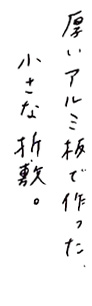 厚いアルミ板で作った、
小さな折敷。